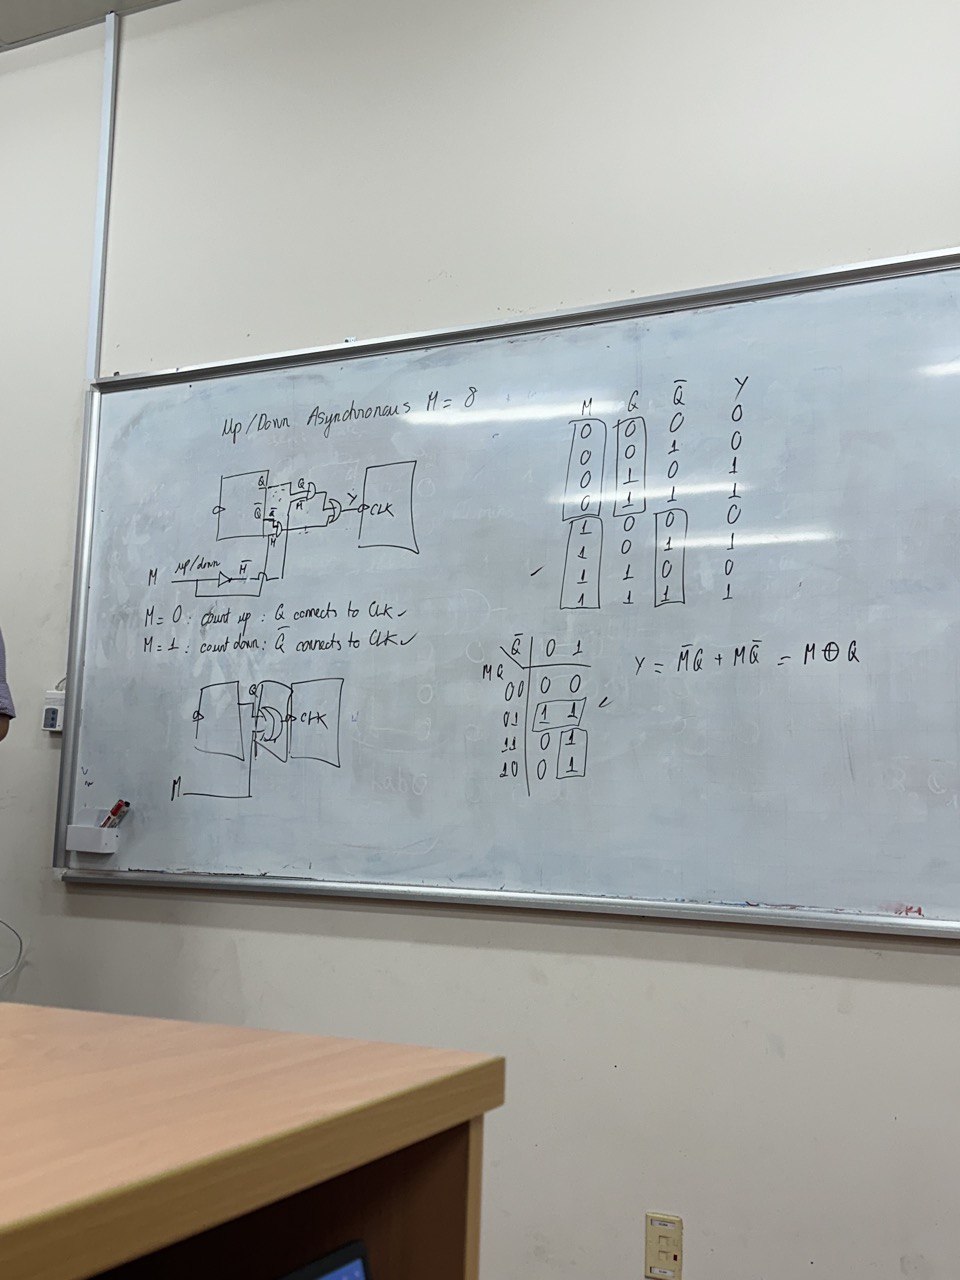 Up/Down Asynchronous M = 8
Q Q
Q̄ Q̄ M̄ Y CLK
M
M up/down M̄
M = 0 : count up : Q connects to CLK ✓
M = 1 : count down : Q̄ connects to CLK ✓
Q CLK
M
M Q Q̄ Y
0 0 0 0
0 0 1 0
0 1 0 1
0 1 1 1
1 0 0 0
1 0 1 1
✓ 1 1 0 0
1 1 1 1
Q̄ 0 1
MQ
00 0 0
01 1 1 ✓
11 0 1
10 0 1
Y = M̄Q + MQ̄ = M ⊕ Q